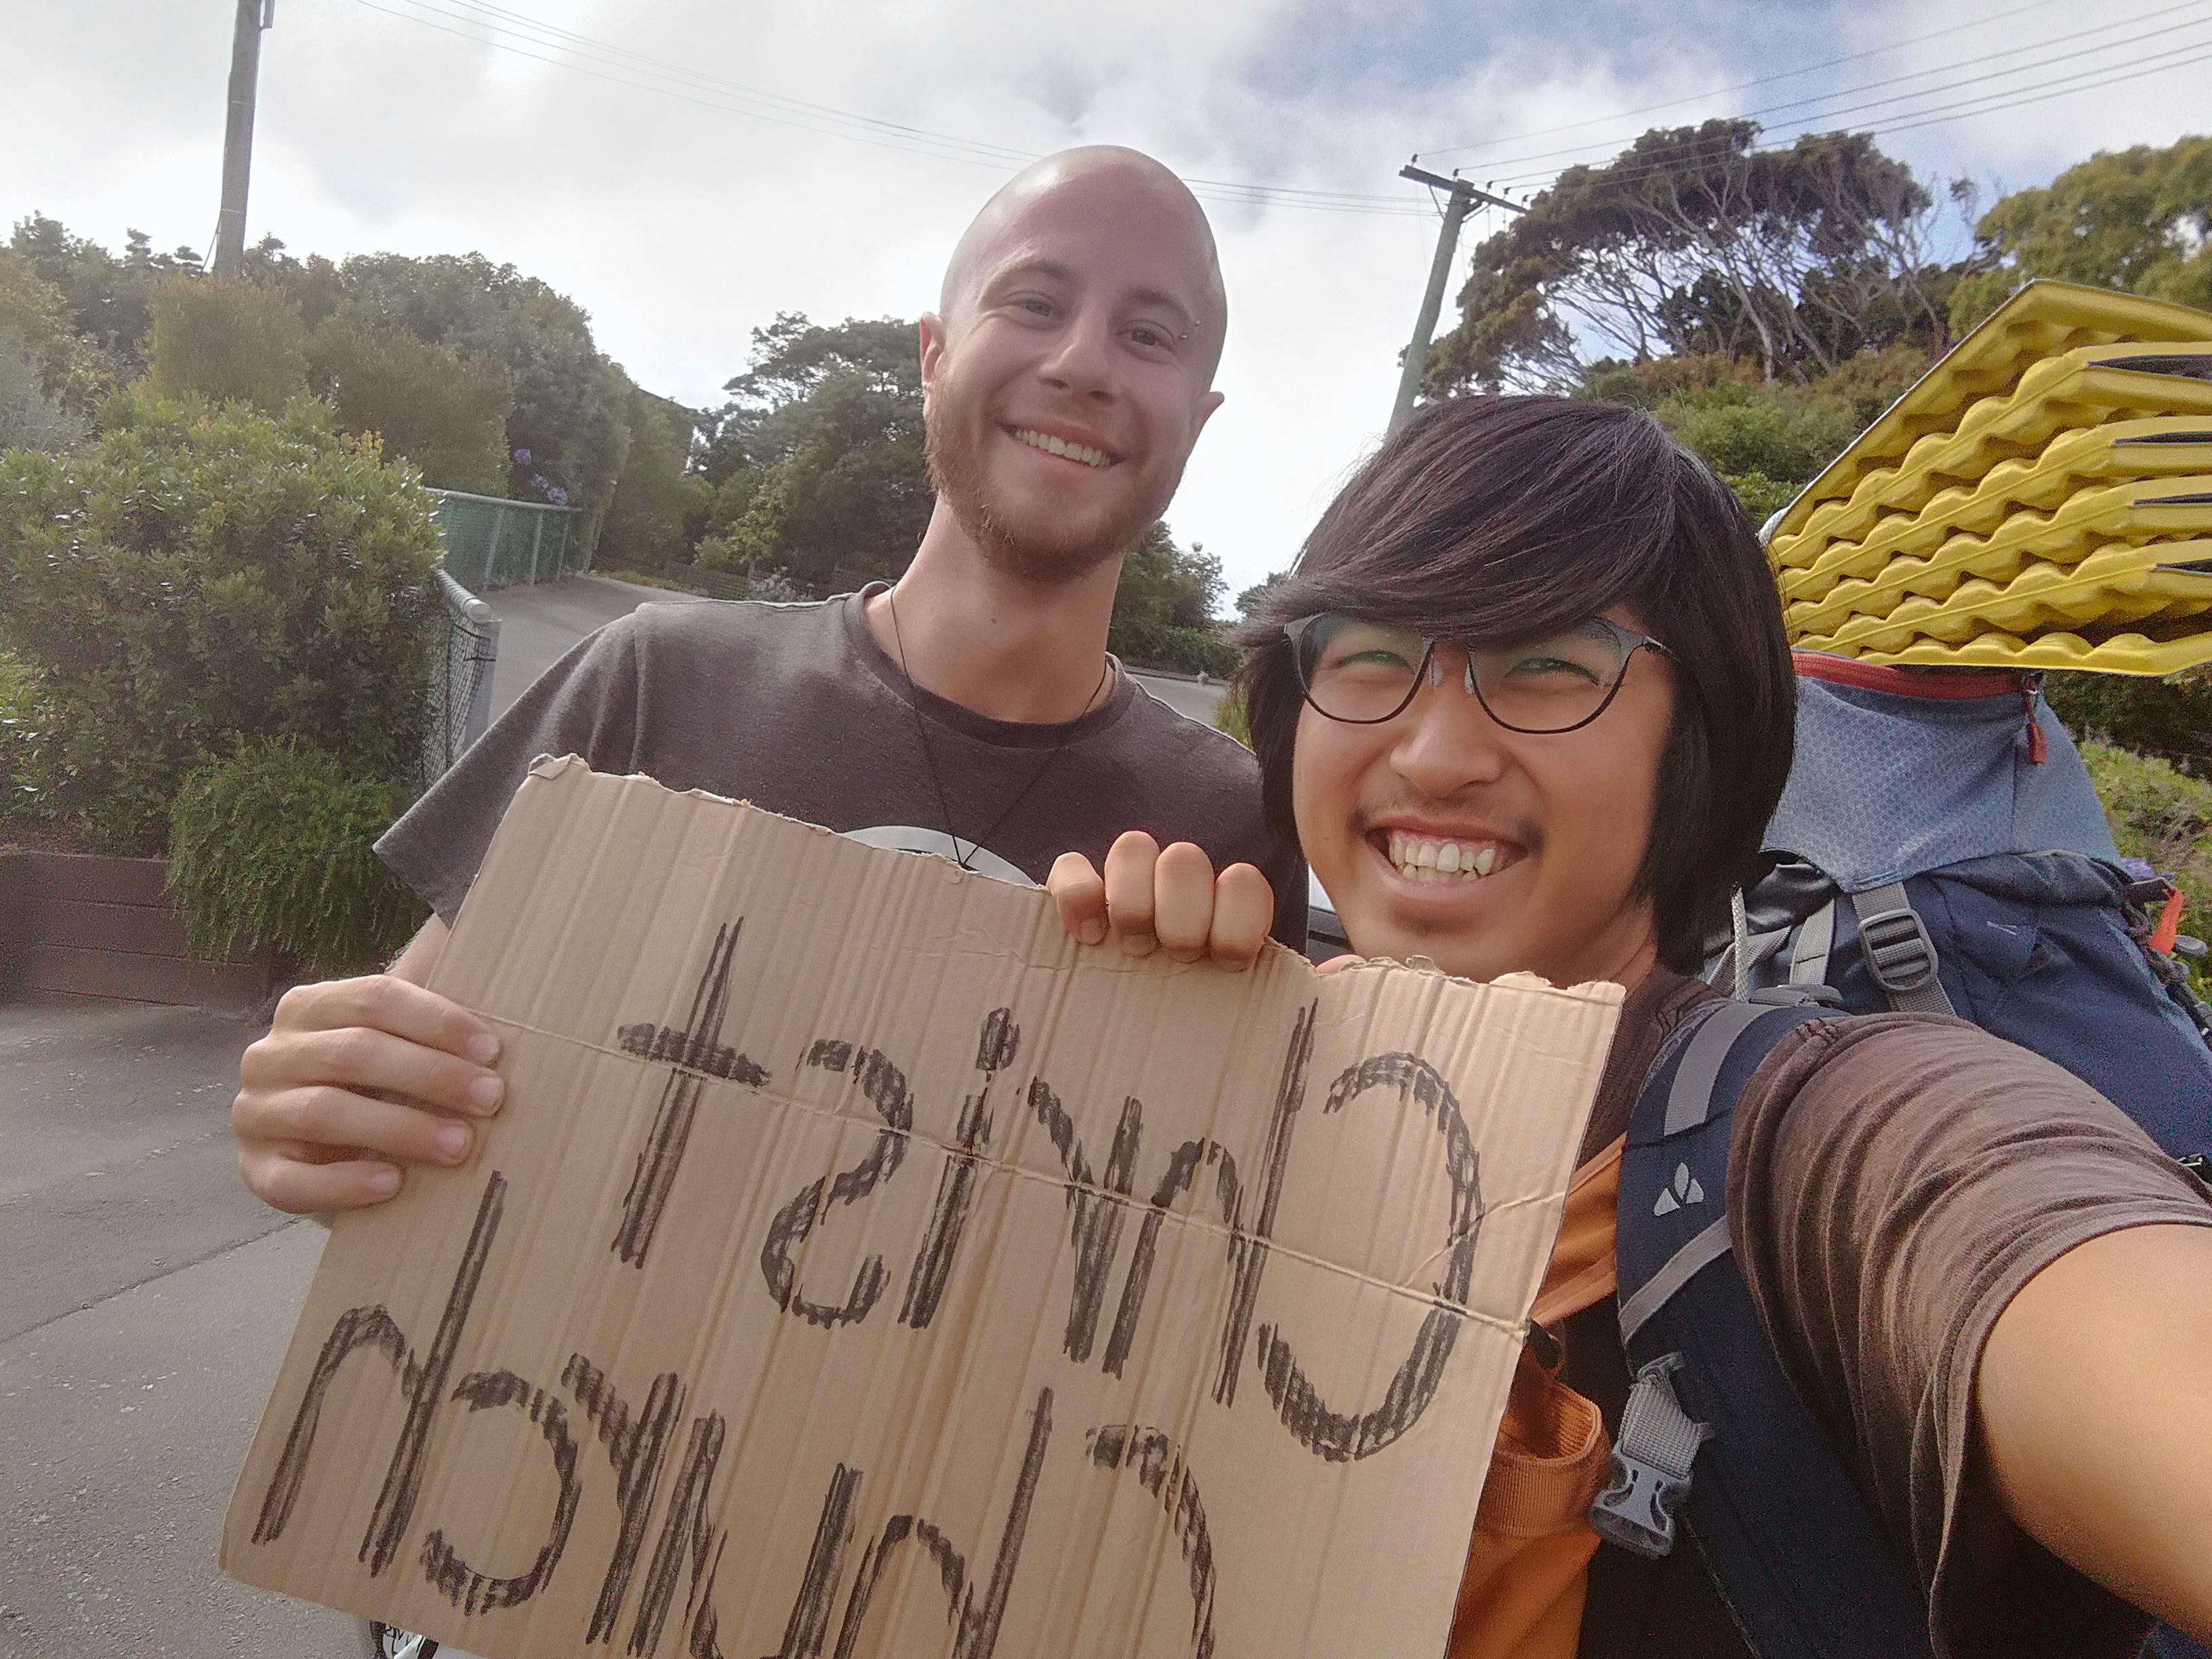 Christ
church